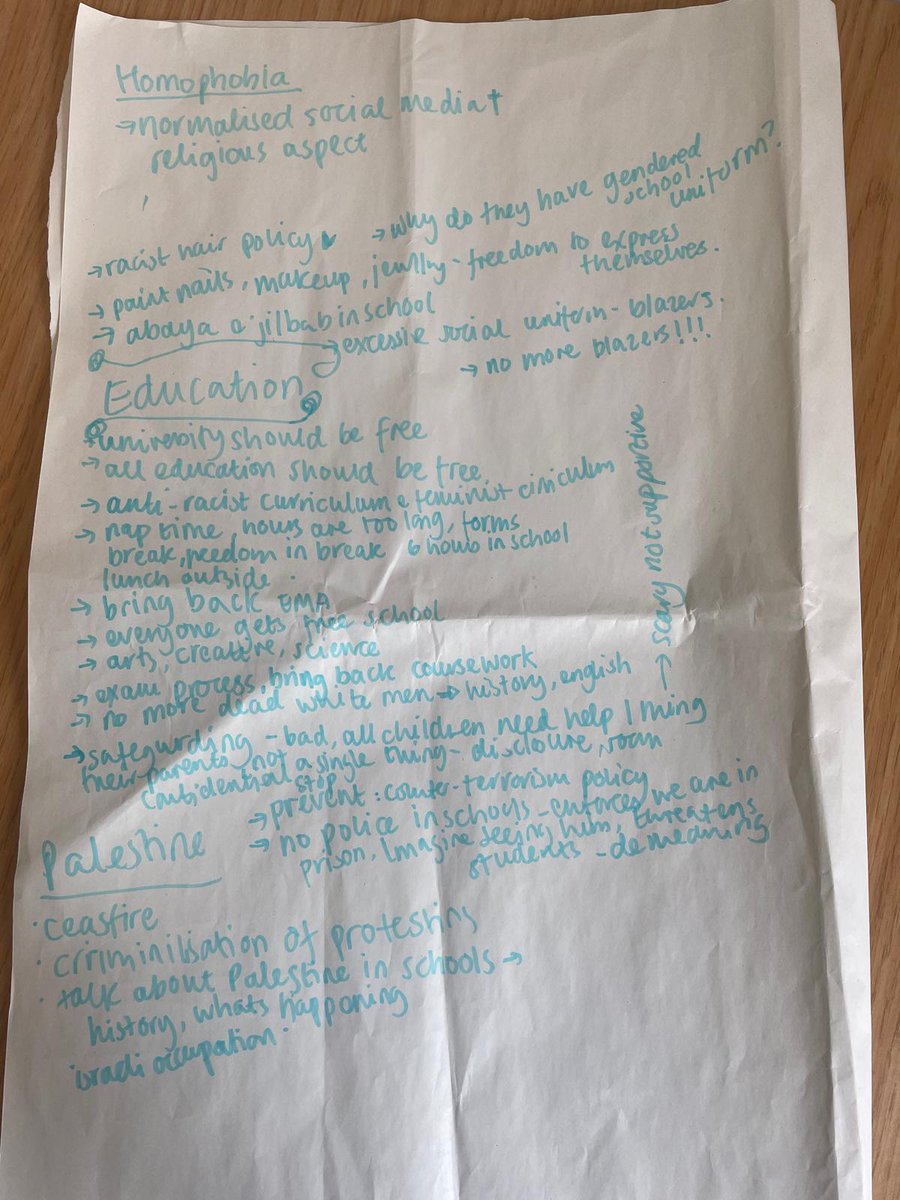 Homophobia
→normalised social media +
religious aspect
→racist hair policy
→why do they have gendered
school
uniform?
→ paint nails, makeup, jewllry - freedom to express
themselves.
→ abaya & jilbab in school
→excessie social uniform - blazers.
→ no more blazers!!!
Education
→university should be free
→ all education should be free.
→ anti-racist curriculum & feminist ciriculum
→ nap time, hours are too long, forms
break, freedom in break 6 hours in school
lunch outside
→ bring back EMA
→ everyone gets free school
→ arts, creative, science
→ exam process, bring back coursework
→ no more dead white men → history, english
→ scary not supportive
→ safegurding - bad, all children need help 1 thing
their parents, not a single thing - disclosure, room
confidential
stop
→ prevent : counter-terrorism policy
→ no police in schools - enforces we are in
prison, imagine seeing him, threatens
students - demeaning
Palestine
· ceasfire
· criminilisation of protesting
· talk about Palestine in schools →
history, whats happening
· israeli occupation ·